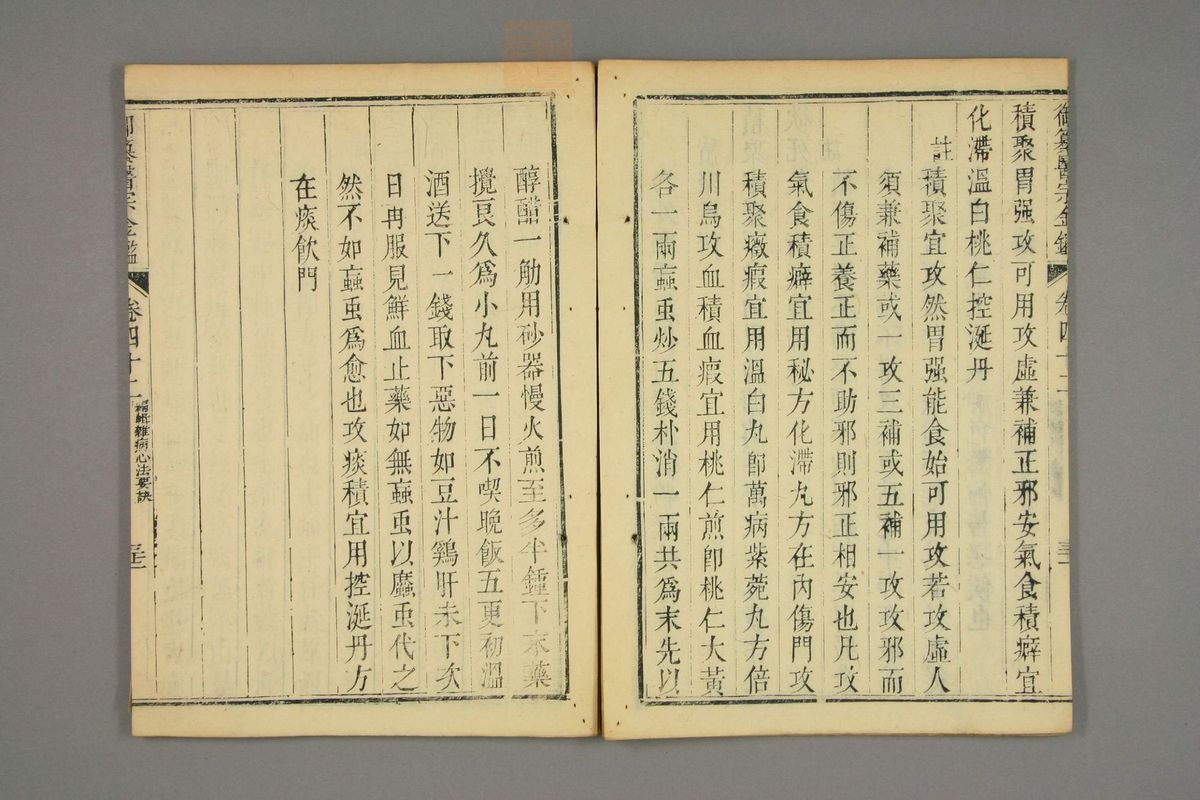 御纂醫宗金鑑 卷四十二
積聚胃强攻可用攻虛兼補正邪安氣食積癖宜
化滯溫白桃仁控涎丹
註積聚宜攻然胃强能食始可用攻若攻虛人
須兼補藥或一攻三補或五補一攻攻邪而
不傷正養正而不助邪則邪正相安也凡攻
氣食積癖宜用秘方化滯丸方在內傷門攻
積聚癥瘕宜用溫白丸卽萬病紫菀丸方倍
川烏攻血積血瘕宜用桃仁煎卽桃仁大黃
各一兩䖟虫炒五錢朴消一兩共爲末先以
醇醋一觔用砂器慢火煎至多半鍾下末藥
攪良久爲小丸前一日不喫晚飯五更初溫
酒送下一錢取下惡物如豆汁鷄肝未下次
日再服見鮮血止藥如無䖟虫以䗪虫代之
然不如䖟虫爲愈也攻痰積宜用控涎丹方
在痰飮門
御纂醫宗金鑑 卷四十二 編輯雜病心法要訣